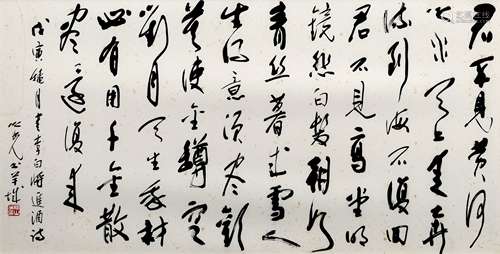 君不見黃河
之水天上來奔
流到海不復回
君不見高堂明
鏡悲白髮朝如
青絲暮成雪人
生得意須盡歡
莫使金罇空
對月天生我材
必有用千金散
盡還復來
戊寅 月書李白將進酒詩